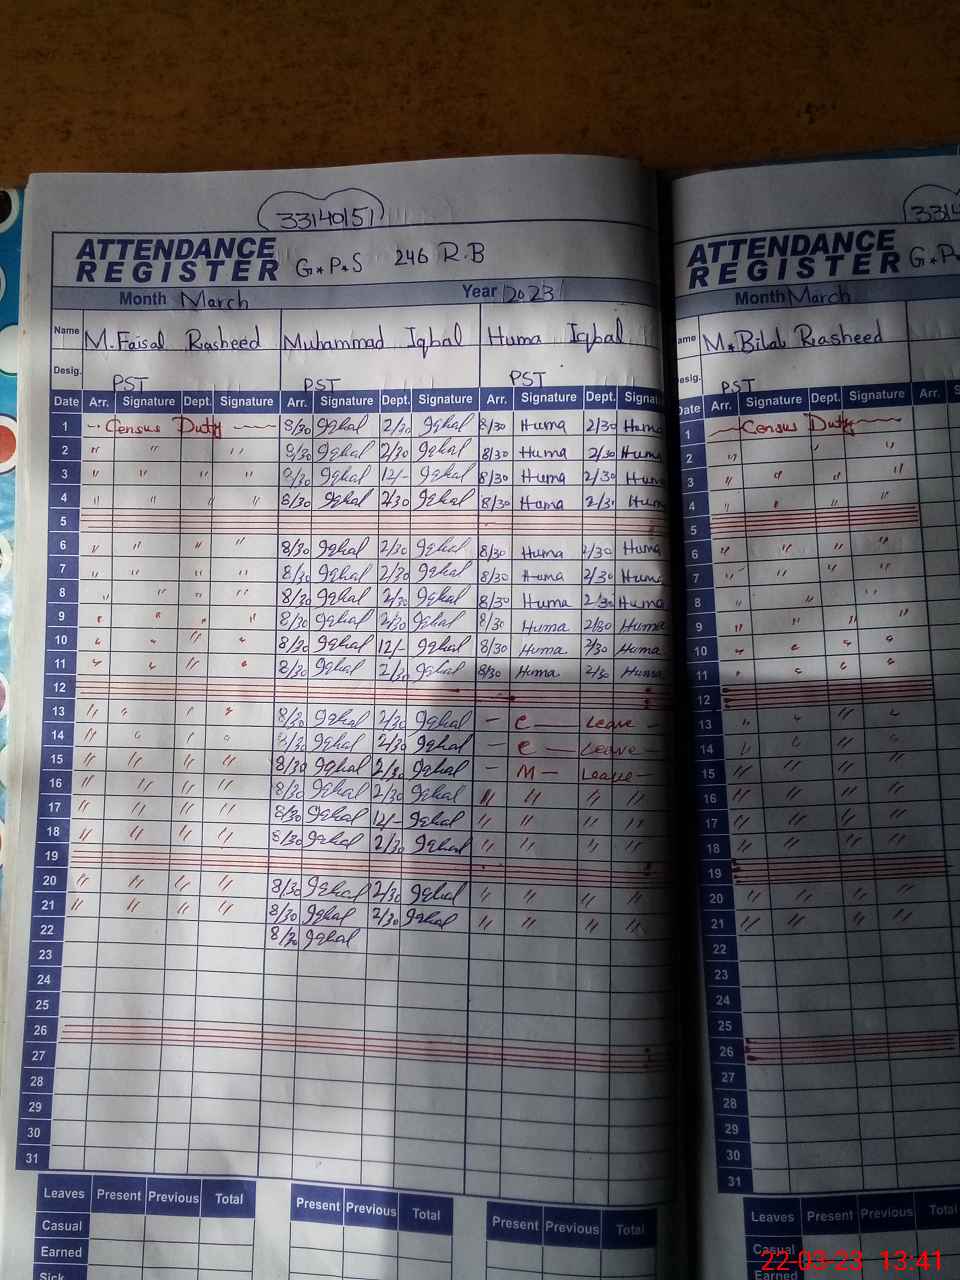 33140151
ATTENDANCE
REGISTER G.P.S 246 R.B
Month March Year 2023
Name M. Faisal Rasheed Muhammad Iqbal Huma Iqbal
Desig. PST PST PST
Date Arr. Signature Dept. Signature Arr. Signature Dept. Signature Arr. Signature Dept. Signatu
1 Census Duty 8/30 Iqbal 2/30 Iqbal 8/30 Huma 2/30 Huma
2 " " " 8/30 Iqbal 2/30 Iqbal 8/30 Huma 2/30 Huma
3 " " " " 8/30 Iqbal 12/- Iqbal 8/30 Huma 2/30 Huma
4 " " " " 8/30 Iqbal 2/30 Iqbal 8/30 Huma 2/30 Huma
5
6 " " " " 8/30 Iqbal 2/30 Iqbal 8/30 Huma 2/30 Huma
7 " " " " 8/30 Iqbal 2/30 Iqbal 8/30 Huma 2/30 Huma
8 " " " " 8/30 Iqbal 2/30 Iqbal 8/30 Huma 2/30 Huma
9 " " " " 8/30 Iqbal 2/30 Iqbal 8/30 Huma 2/30 Huma
10 " " " " 8/30 Iqbal 12/- Iqbal 8/30 Huma 2/30 Huma
11 " " " " 8/30 Iqbal 2/30 Iqbal 8/30 Huma 2/30 Huma
12
13 " " " " 8/30 Iqbal 2/30 Iqbal - C - Leave -
14 " " " " 8/30 Iqbal 2/30 Iqbal - C - Leave -
15 " " " " 8/30 Iqbal 2/30 Iqbal - M - Leave -
16 " " " " 8/30 Iqbal 2/30 Iqbal " " " "
17 " " " " 8/30 Iqbal 12/- Iqbal " " " "
18 " " " " 8/30 Iqbal 2/30 Iqbal " " " "
19
20 " " " " 8/30 Iqbal 2/30 Iqbal " " " "
21 " " " " 8/30 Iqbal 2/30 Iqbal " " " "
22 8/30 Iqbal
23
24
25
26
27
28
29
30
31
Leaves Present Previous Total Present Previous Total Present Previous Total
Casual
Earned
Sick
3314
ATTENDANCE
REGISTER G.P.
Month March
ame M. Bilal Rasheed
esig. PST
Date Arr. Signature Dept. Signature Arr. S
1 Census Duty
2 " " "
3 " " " "
4 " " " "
5
6 " " " "
7 " " " "
8 " " "
9 " " " "
10 " " " "
11 " " " "
12
13 " " " "
14 " " " "
15 " " " "
16 " " " "
17 " " " "
18 " " " "
19
20 " " " "
21 " " " "
22
23
24
25
26
27
28
29
30
31
Leaves Present Previous Total
Casual
Earned
22-03-23 13:41